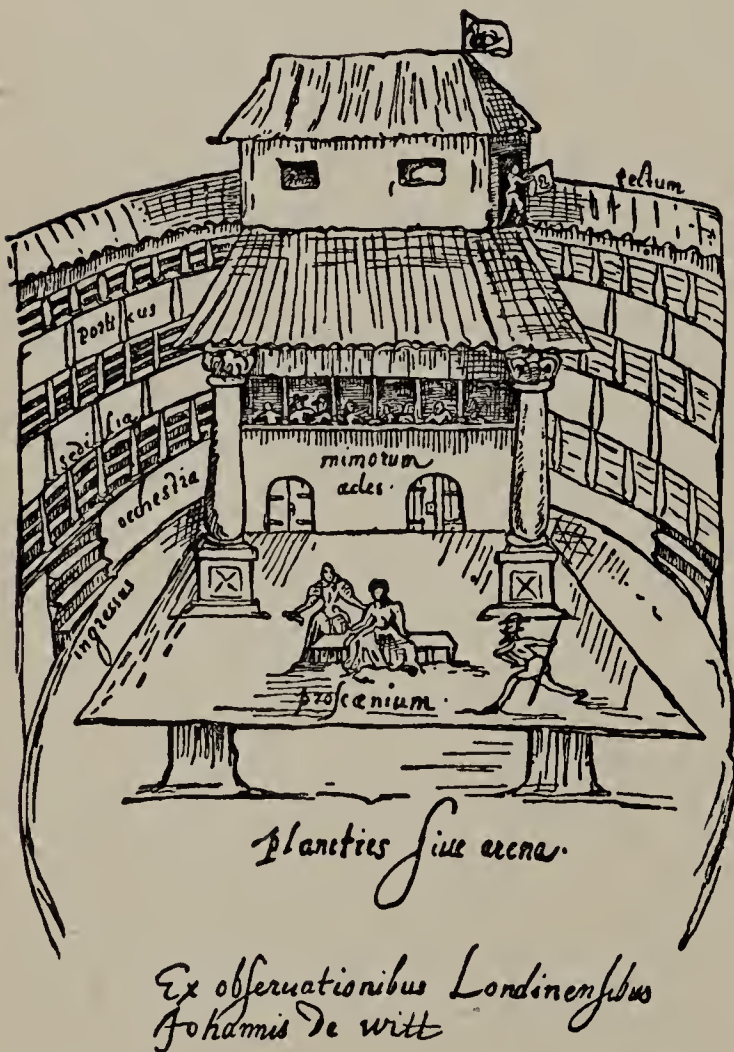 tectum
porticus
sedilia
orchestra
mimorum
ædes.
ingressus
proscænium.
planities siue arena.
Ex obseruationibus Londinensibus
Johannis De witt